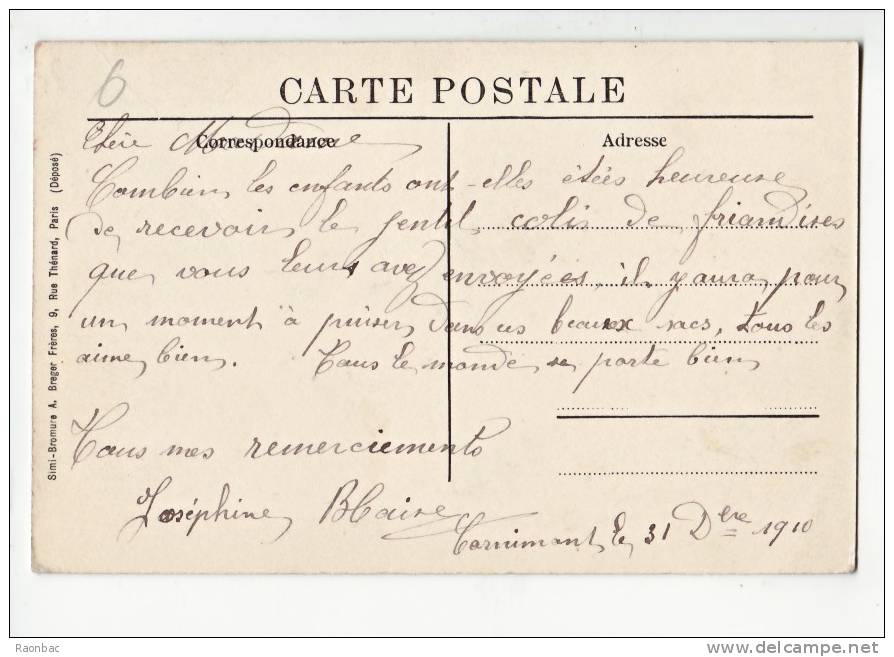 6
CARTE POSTALE
Correspondance
Adresse
Chère Madame
Combien les enfants ont-elles étées heureuse
de recevoir le gentil colis de friandises
que vous leurs avez envoyées, il y aura pour
un moment à puiser dans ces beaux sacs, tous les
aime bien. Tous le monde se porte bien
Tous mes remerciements
Joséphine Blaise
Cornimont, le 31 Dbre 1910
Simi-Bromure A. Breger Frères, 9, Rue Thénard, Paris (Déposé)
Raonbac
delcampe.net